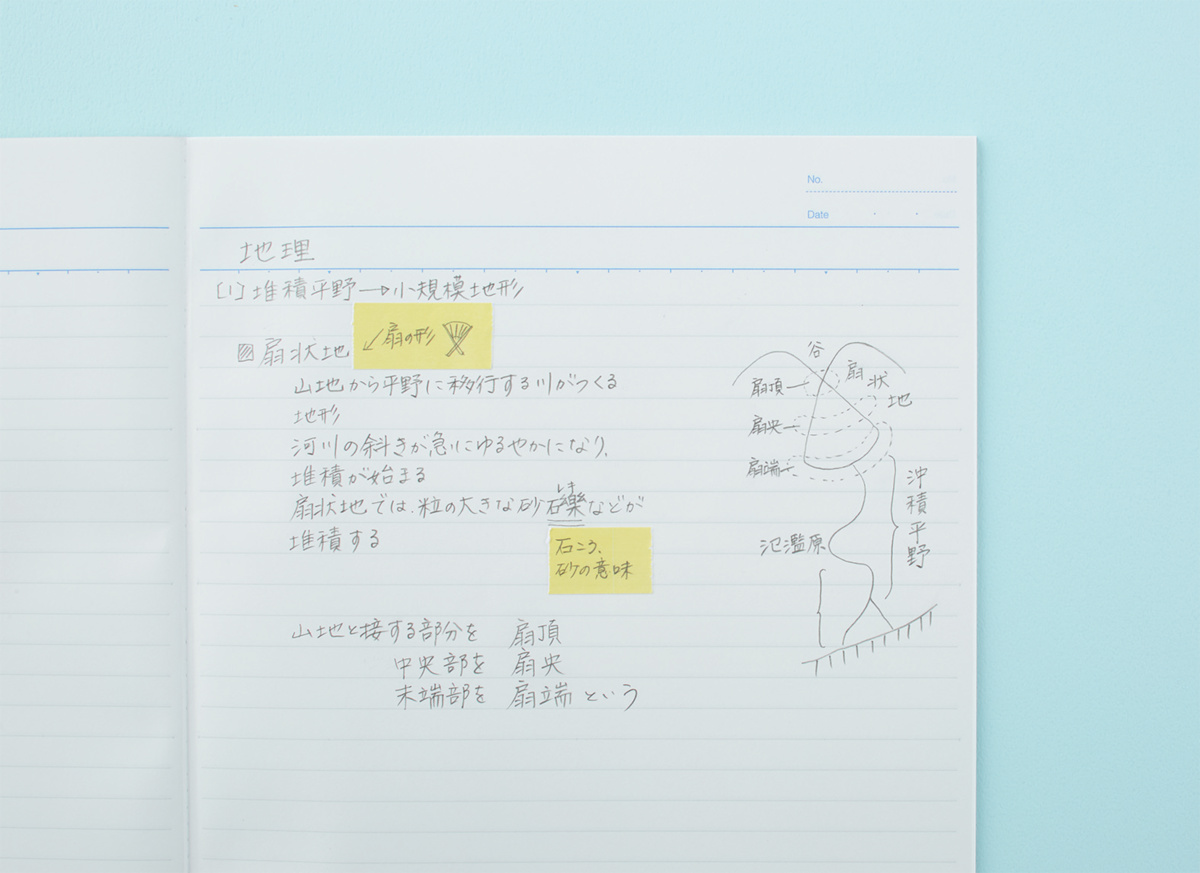 No.
Date
地理
[1]堆積平野→小規模地形
扇状地
↙扇の形
山地から平野に移行する川がつくる
地形
河川の斜きが急にゆるやかになり、
堆積が始まる
扇状地では、粒の大きな砂礫などが
れき
堆積する
石ころ、
砂の意味
山地と接する部分を 扇頂
中央部を 扇央
末端部を 扇端 という
谷
扇状地
扇頂
扇央
扇端
沖積平野
氾濫原